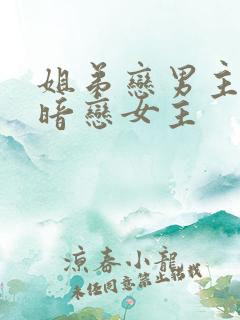 姐弟戀男主
暗戀女主
涼春小龍
未经同意禁止转载